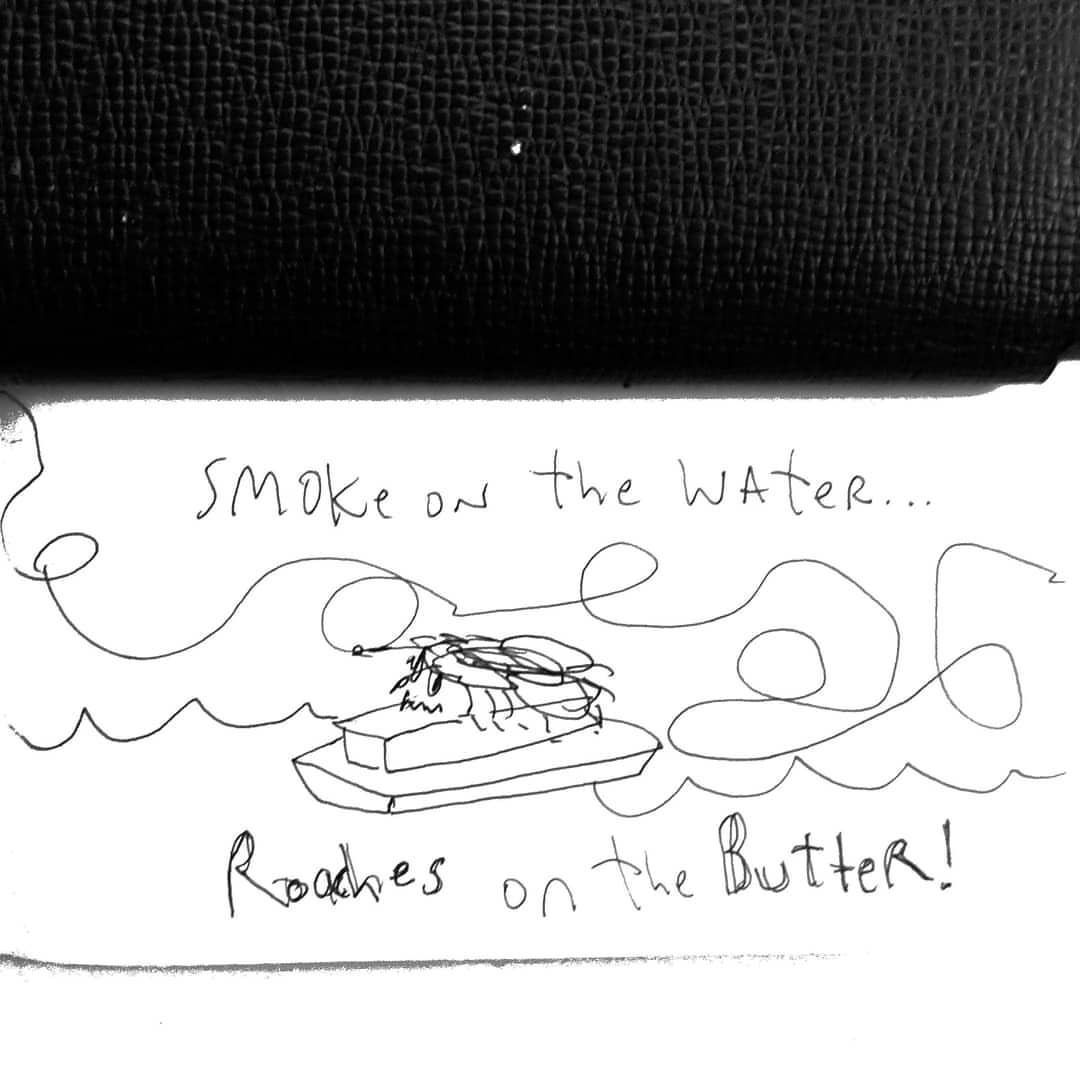 SMOKe ON the WAteR...
Roaches on the ButteR!